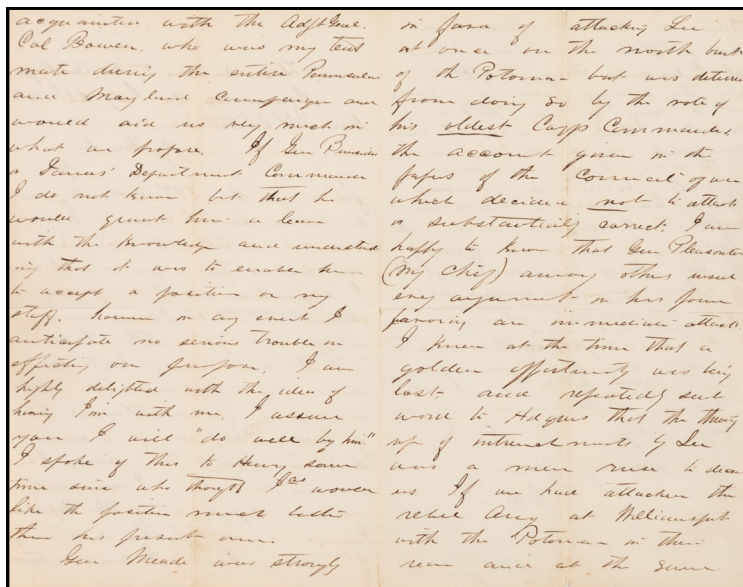 acquainted with the Adjt Genl.
Col Bowen, who was my tent
mate during the entire Peninsular
and Maryland Campaign and
would aid us very much in
what we propose. If Gen Burnside
is James' Department Commander
I do not know but that he
would grant him a leave
with the knowledge and understand
ing that it was to enable him
to accept a position on my
staff. however in any event I
anticipate no serious trouble in
effecting our purpose, I am
highly delighted with the idea of
having Jim with me, I assure
you I will "do well by him"
I spoke of this to Henry some
time since who thought Jas would
like the position much better
than his present one.
Gen Meade was strongly
in favor of attacking Lee
at once on the north bank
of the Potomac but was deterred
from doing so by the vote of
his oldest Corps Commanders,
the account given in the
papers of the Council of war
which decided not to attack
is substantially correct. I am
happy to know that Gen Pleasonton
(my chief) among others used
every argument in his power
favoring an immediate attack.
I knew at the time that a
golden opportunity was being
lost and repeatedly sent
word to Hdqrs that the throwing
up of intrenchments by Lee
was a mere ruse to deceive
us. If we had attacked the
rebel Army at Williamsport
with the Potomac in their
rear and at the same